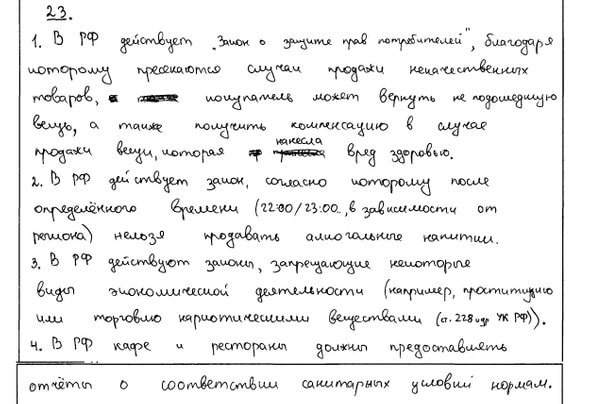 23.
1. В РФ действует „Закон о защите прав потребителей", благодаря
которому пресекаются случаи продажи некачественных
товаров, покупатель может вернуть не подошедшую
вещь, а также получить компенсацию в случае
продажи вещи, которая нанесла вред здоровью.
2. В РФ действует закон, согласно которому после
определённого времени (22:00/23:00, в зависимости от
региона) нельзя продавать алкогольные напитки.
3. В РФ действуют законы, запрещающие некоторые
виды экономической деятельности (например, проституцию
или торговлю наркотическими веществами (ст. 228 и др УК РФ)).
4. В РФ кафе и рестораны должны предоставлять
отчёты о соответствии санитарных условий нормам.